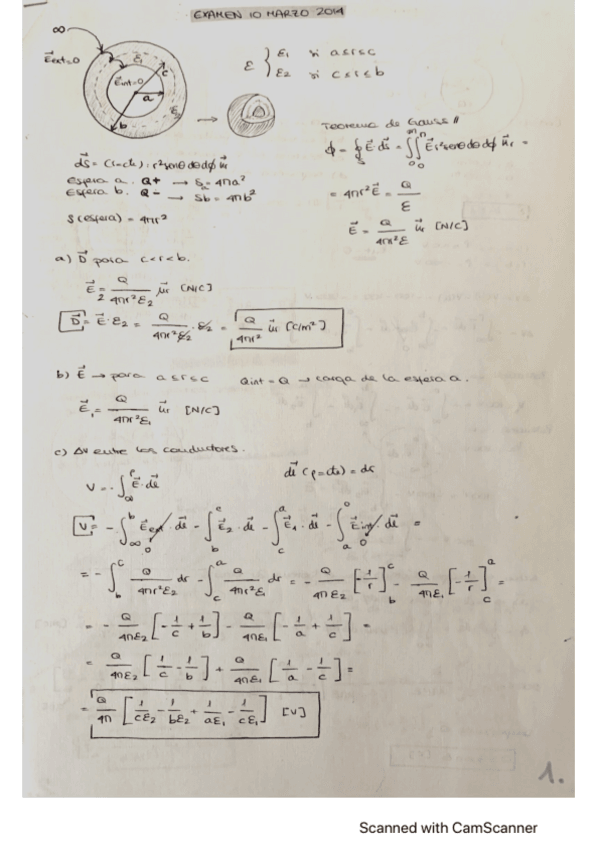 EXAMEN 10 MARZO 2014
∞
E⃗ext=0
ε₁
E⃗int=0
c
a
ε₂
b
ε { ε₁ si a≤r≤c
ε₂ si c≤r≤b
Teorema de Gauss //
ϕ = ∮ E⃗·ds⃗ = ∬ E⃗ r² senθ dθ dϕ u⃗r =
= 4πr² E⃗ = Q/ε
E⃗ = Q/(4πr²ε) u⃗r [N/C]
ds⃗ = r² senθ dθ dϕ u⃗r
Esfera a. Q+ → Sa = 4πa²
Esfera b. Q- → Sb = 4πb²
S(esfera) = 4πr²
a) D⃗ para c<r<b.
E⃗₂ = Q/(4πr²ε₂) u⃗r [N/C]
D⃗ = E⃗·ε₂ = Q/(4πr²ε₂) · ε₂ = Q/(4πr²) u⃗r [C/m²]
b) E⃗ → para a≤r≤c Qint = Q → carga de la esfera a.
E⃗₁ = Q/(4πr²ε₁) u⃗r [N/C]
c) ΔV entre los conductores.
V = -∫_∞^r E⃗·dl⃗
V = -∫_∞^b E⃗ext·dl⃗ - ∫_b^c E⃗₂·dl⃗ - ∫_c^a E⃗₁·dl⃗ - ∫_a^0 E⃗int·dl⃗ =
= -∫_b^c Q/(4πr²ε₂) dr - ∫_c^a Q/(4πr²ε₁) dr = -Q/(4πε₂) [-1/r]_b^c - Q/(4πε₁) [-1/r]_c^a =
= -Q/(4πε₂) [-1/c + 1/b] - Q/(4πε₁) [-1/a + 1/c] =
= Q/(4πε₂) [1/c - 1/b] + Q/(4πε₁) [1/a - 1/c] =
= Q/4π [1/(cε₂) - 1/(bε₂) + 1/(aε₁) - 1/(cε₁)] [V]
1.
Scanned with CamScanner